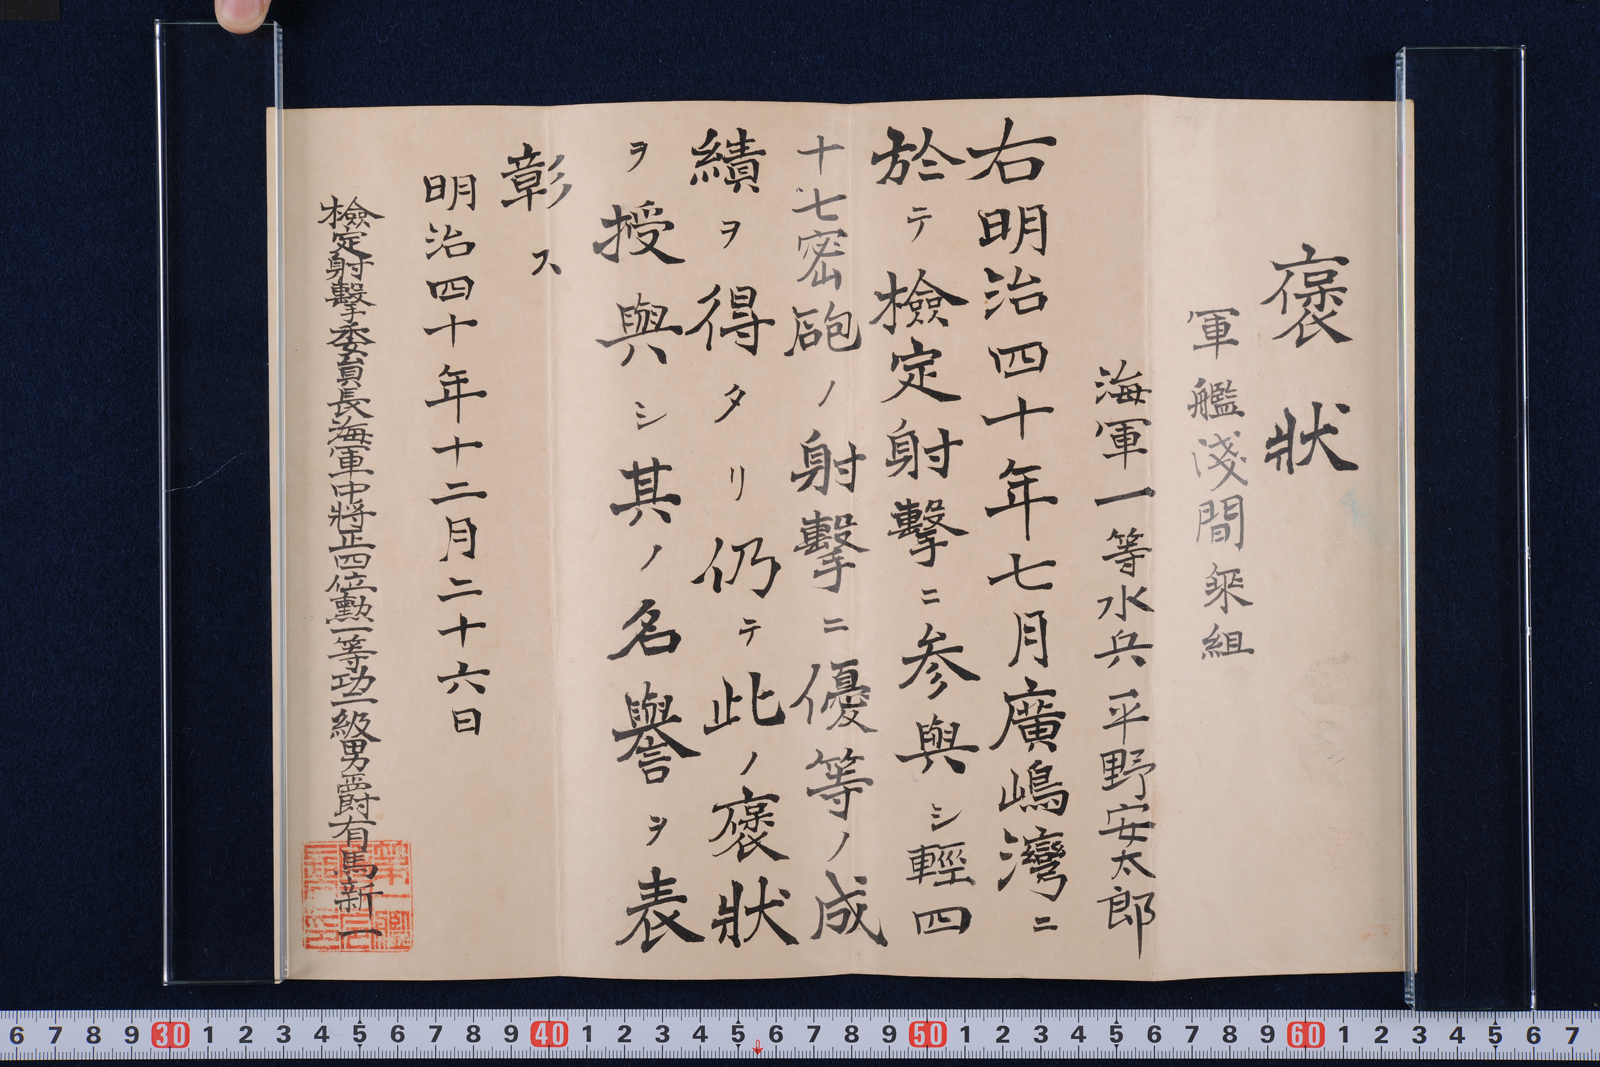 褒狀
軍艦淺間乘組
海軍一等水兵平野安太郎
右明治四十年七月廣嶋灣ニ
於テ檢定射擊ニ参與シ輕四
十七密砲ノ射擊ニ優等ノ成
績ヲ得タリ仍テ此ノ褒狀
ヲ授與シ其ノ名譽ヲ表
彰ス
明治四十年十二月二十六日
檢定射擊委員長海軍中將正四位勳一等功二級男爵有馬新一
6 7 8 9 30 1 2 3 4 5 6 7 8 9 40 1 2 3 4 5 6 7 8 9 50 1 2 3 4 5 6 7 8 9 60 1 2 3 4 5 6 7